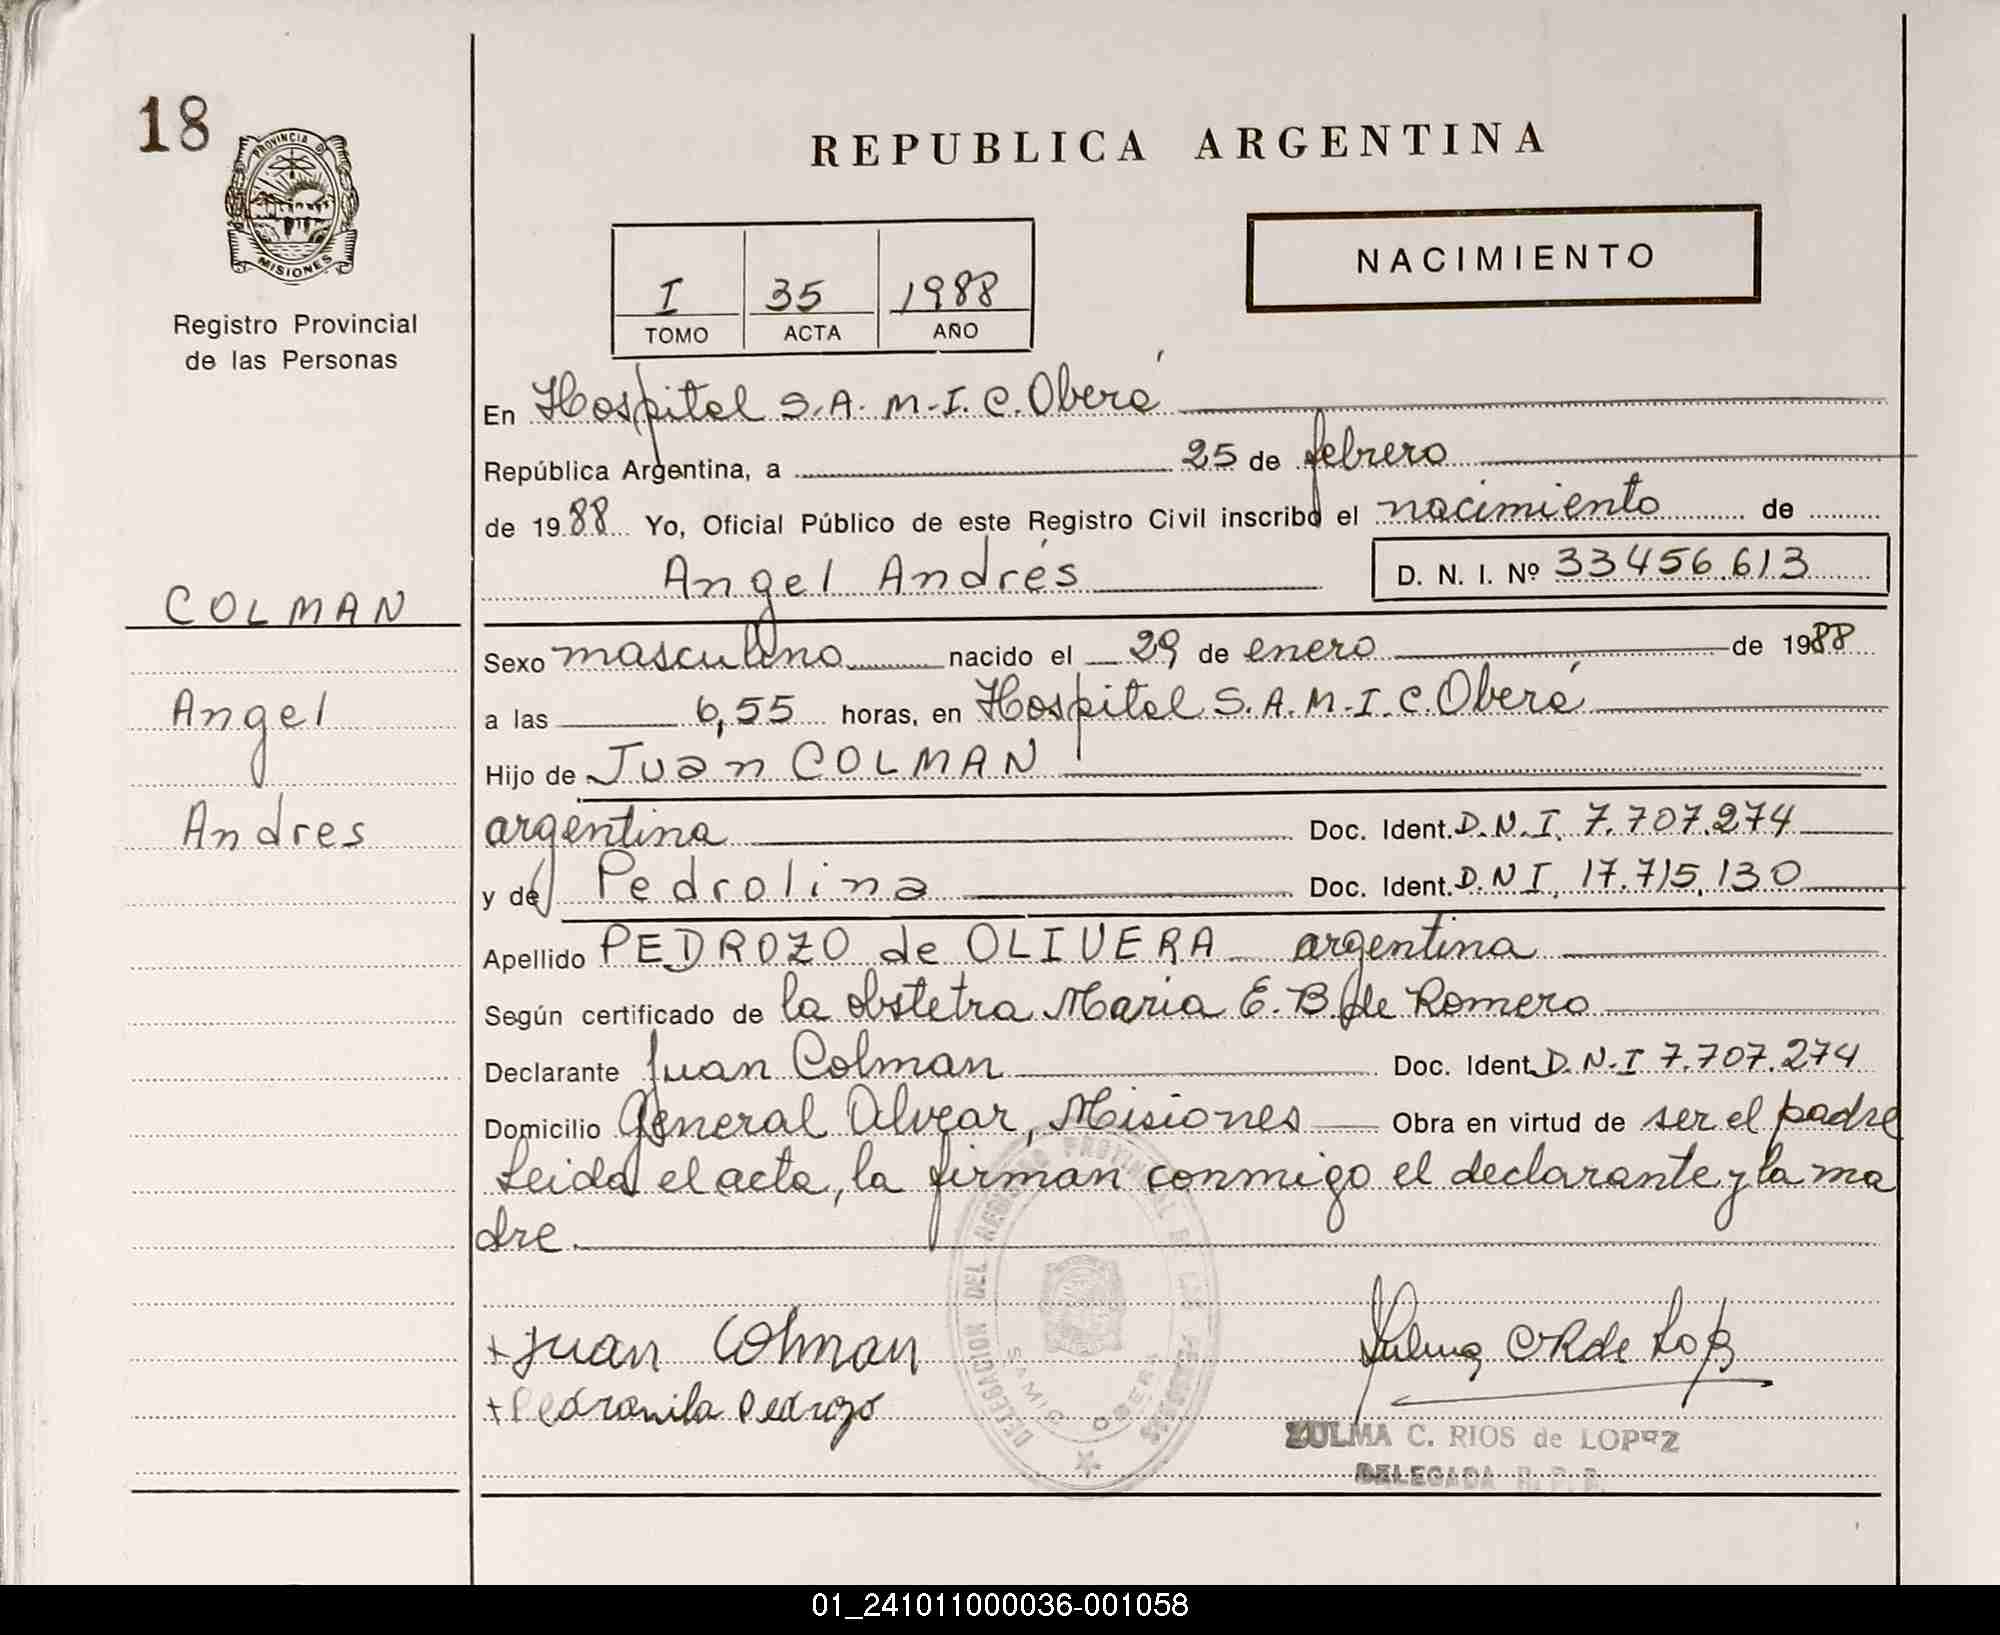 18
PROVINCIA DE
MISIONES
Registro Provincial
de las Personas
COLMAN
Angel
Andres
REPUBLICA ARGENTINA
NACIMIENTO
I 35 1988
TOMO ACTA AÑO
En Hospital S.A.M.I.C. Oberá
República Argentina, a 25 de febrero
de 1988 Yo, Oficial Público de este Registro Civil inscribo el nacimiento de
Angel Andrés D. N. I. Nº 33456.613
Sexo masculino nacido el 29 de enero de 1988
a las 6,55 horas, en Hospital S.A.M.I.C. Oberá
Hijo de Juan COLMAN
argentina Doc. Ident. D.N.I. 7.707.274
y de Pedrolina Doc. Ident. D.N I. 17.715.130
Apellido PEDROZO de OLIVERA argentina
Según certificado de la obstetra Maria E. B. de Romero
Declarante Juan Colman Doc. Ident. D.N.I 7.707.274
Domicilio General Alvear, Misiones Obra en virtud de ser el padre
Leida el acta, la firman conmigo el declarante y la ma
dre.
DELEGACION DEL REGISTRO PROVINCIAL DE LAS PERSONAS
SAMIC OBERA
+ Juan Colman
+ Pedronila Pedrozo
Zulma C R de Lopez
ZULMA C. RIOS de LOPEZ
DELEGADA R. P. P.
01_241011000036-001058